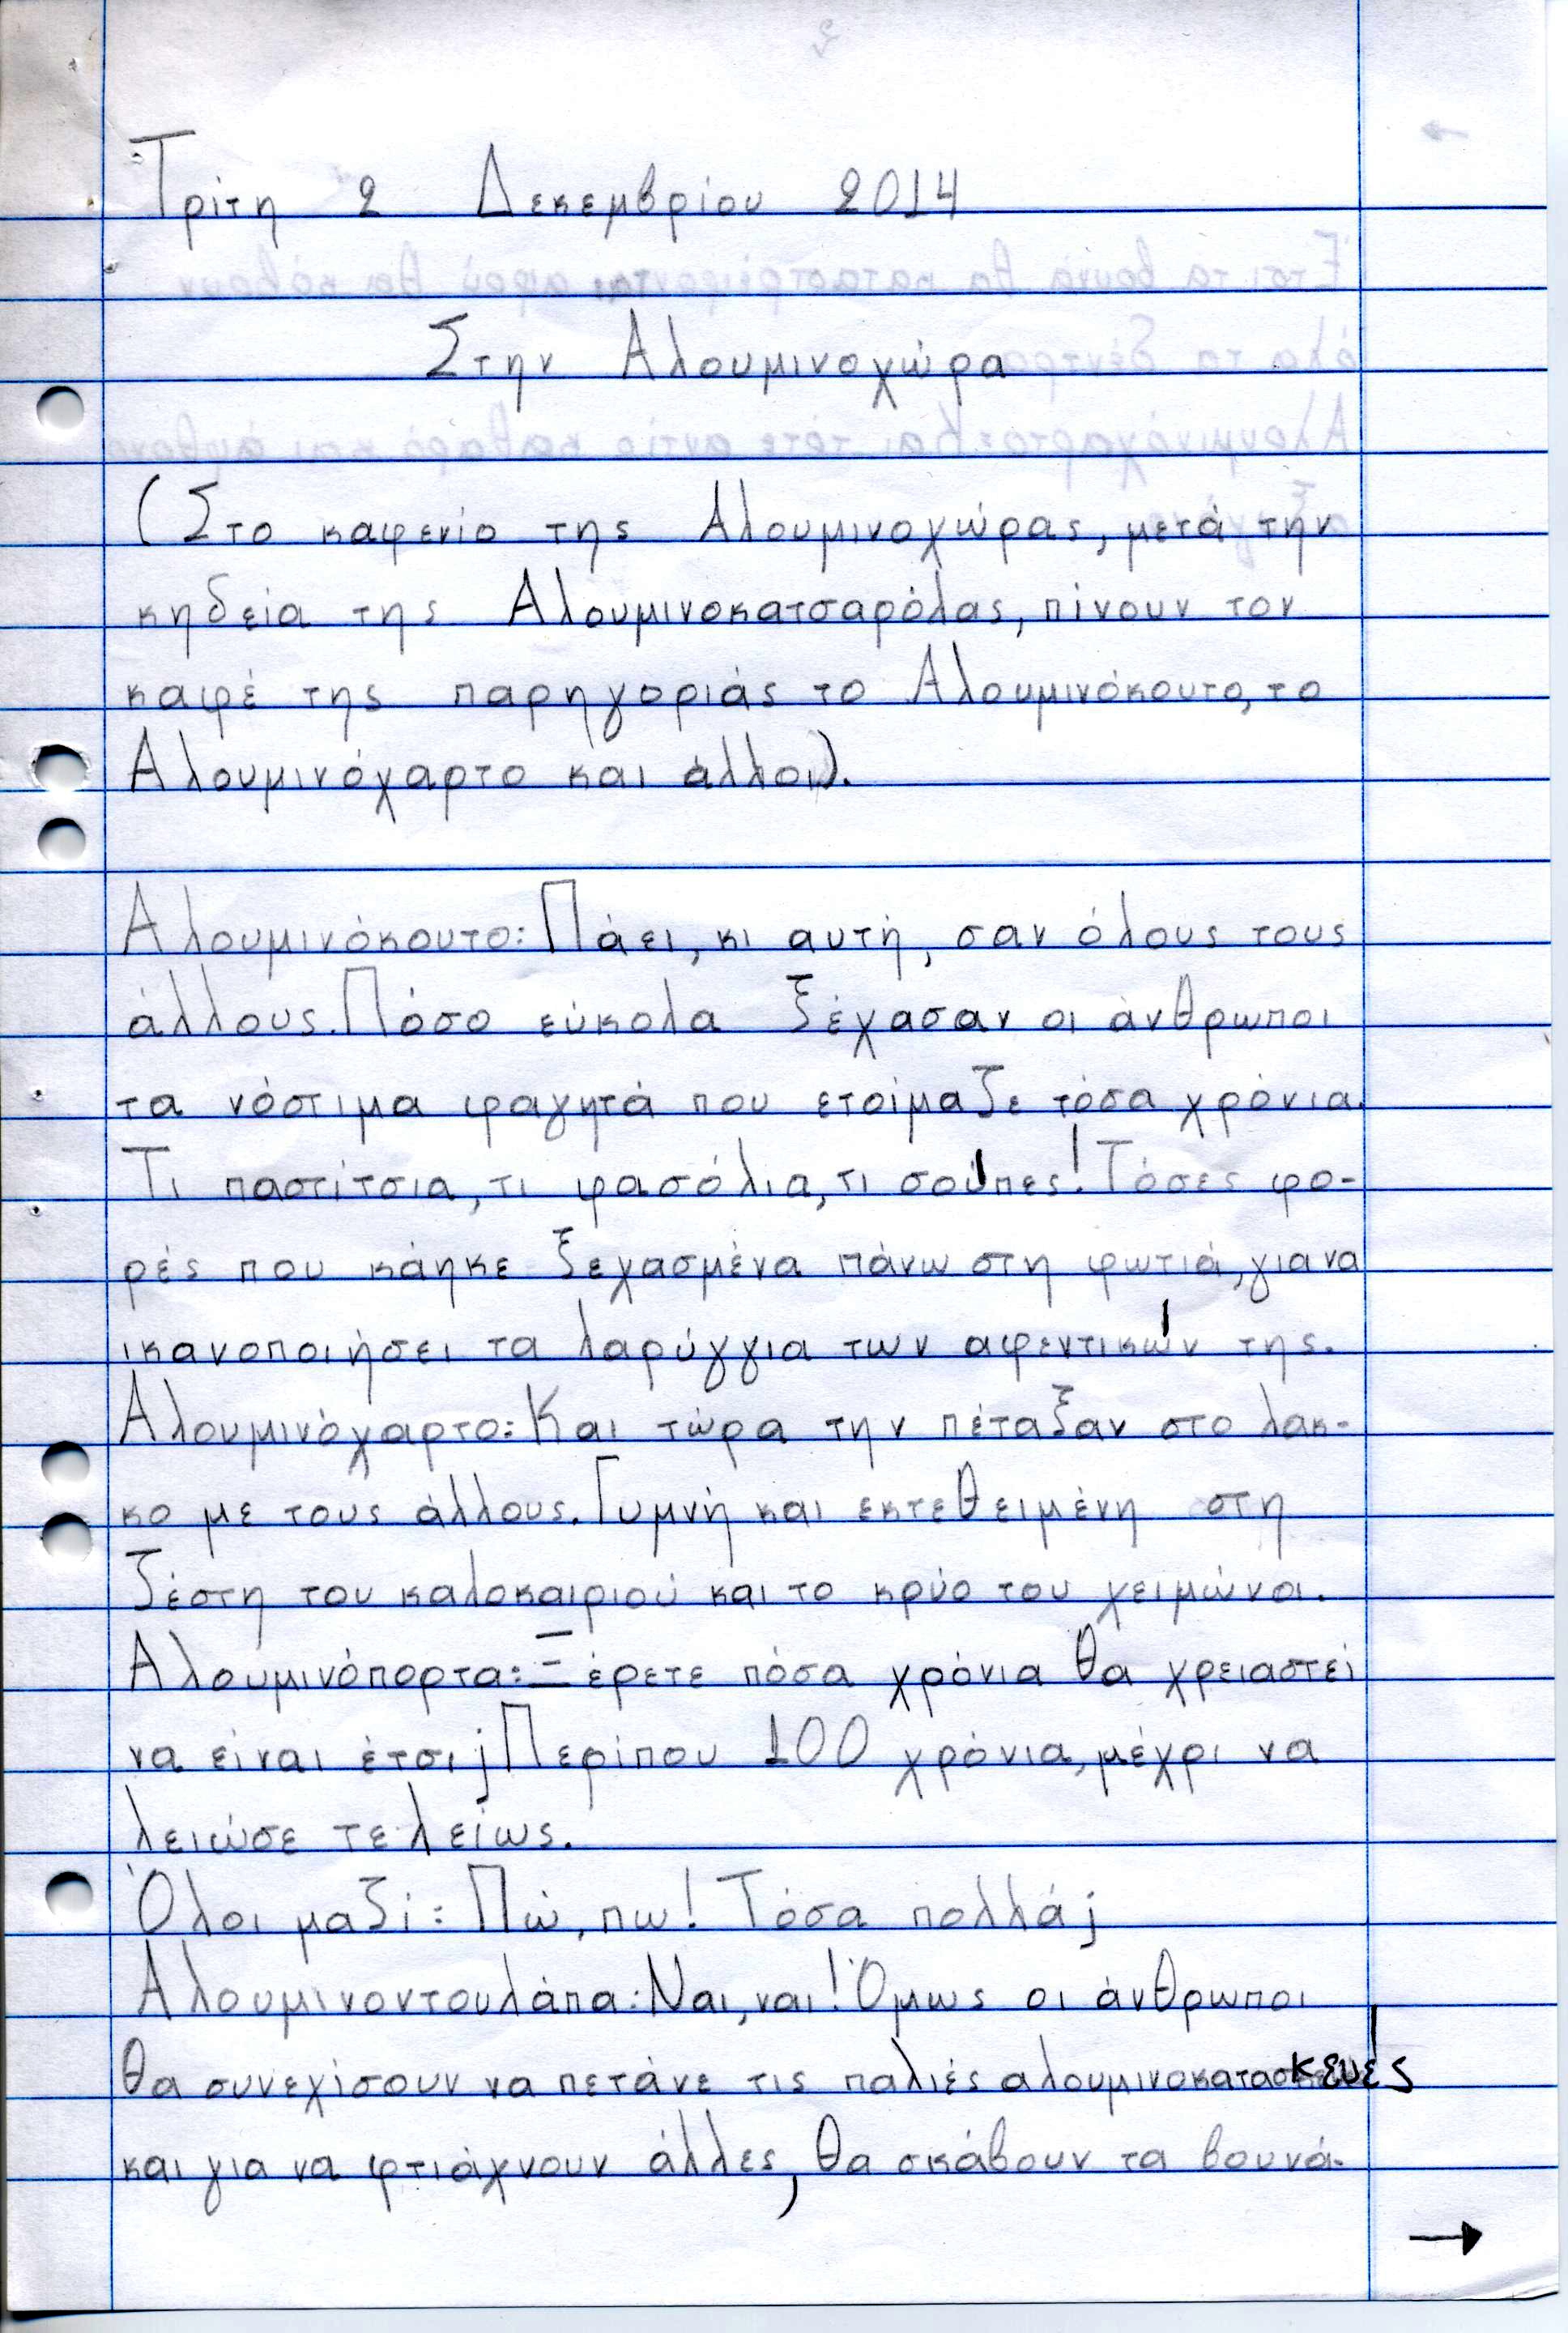 Τρίτη 2 Δεκεμβρίου 2014
Στην Αλουμινοχώρα
(Στο καφενίο της Αλουμινοχώρας, μετά την
κηδεία της Αλουμινοκατσαρόλας, πίνουν τον
καφέ της παρηγοριάς το Αλουμινόκουτο, το
Αλουμινόχαρτο και άλλοι).
Αλουμινόκουτο: Πάει, κι αυτή, σαν όλους τους
άλλους. Πόσο εύκολα ξέχασαν οι άνθρωποι
τα νόστιμα φαγητά που ετοίμαζε τόσα χρόνια.
Τι παστίτσια, τι φασόλια, τι σούπες! Τόσες φο-
ρές που κάηκε ξεχασμένα πάνω στη φωτιά, για να
ικανοποιήσει τα λαρύγγια των αφεντικών της.
Αλουμινόχαρτο: Και τώρα την πέταξαν στο λακ-
κο με τους άλλους. Γυμνή και εκτεθειμένη στη
ζέστη του καλοκαιριού και το κρύο του χειμώνα.
Αλουμινόπορτα: Ξέρετε πόσα χρόνια θα χρειαστεί
να είναι έτσι; Περίπου 100 χρόνια, μέχρι να
λειώσε τελείως.
Όλοι μαζί: Πώ, πω! Τόσα πολλά;
Αλουμινοντουλάπα: Ναι, ναι! Όμως οι άνθρωποι
θα συνεχίσουν να πετάνε τις παλιές αλουμινοκατασκευές
και για να φτιάχνουν άλλες, θα σκάβουν τα βουνά.
→